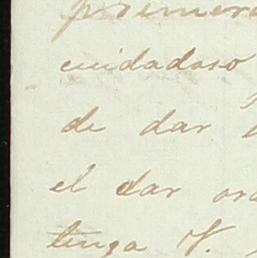 primera
cuidadoso
de dar
el dar
tenga V.